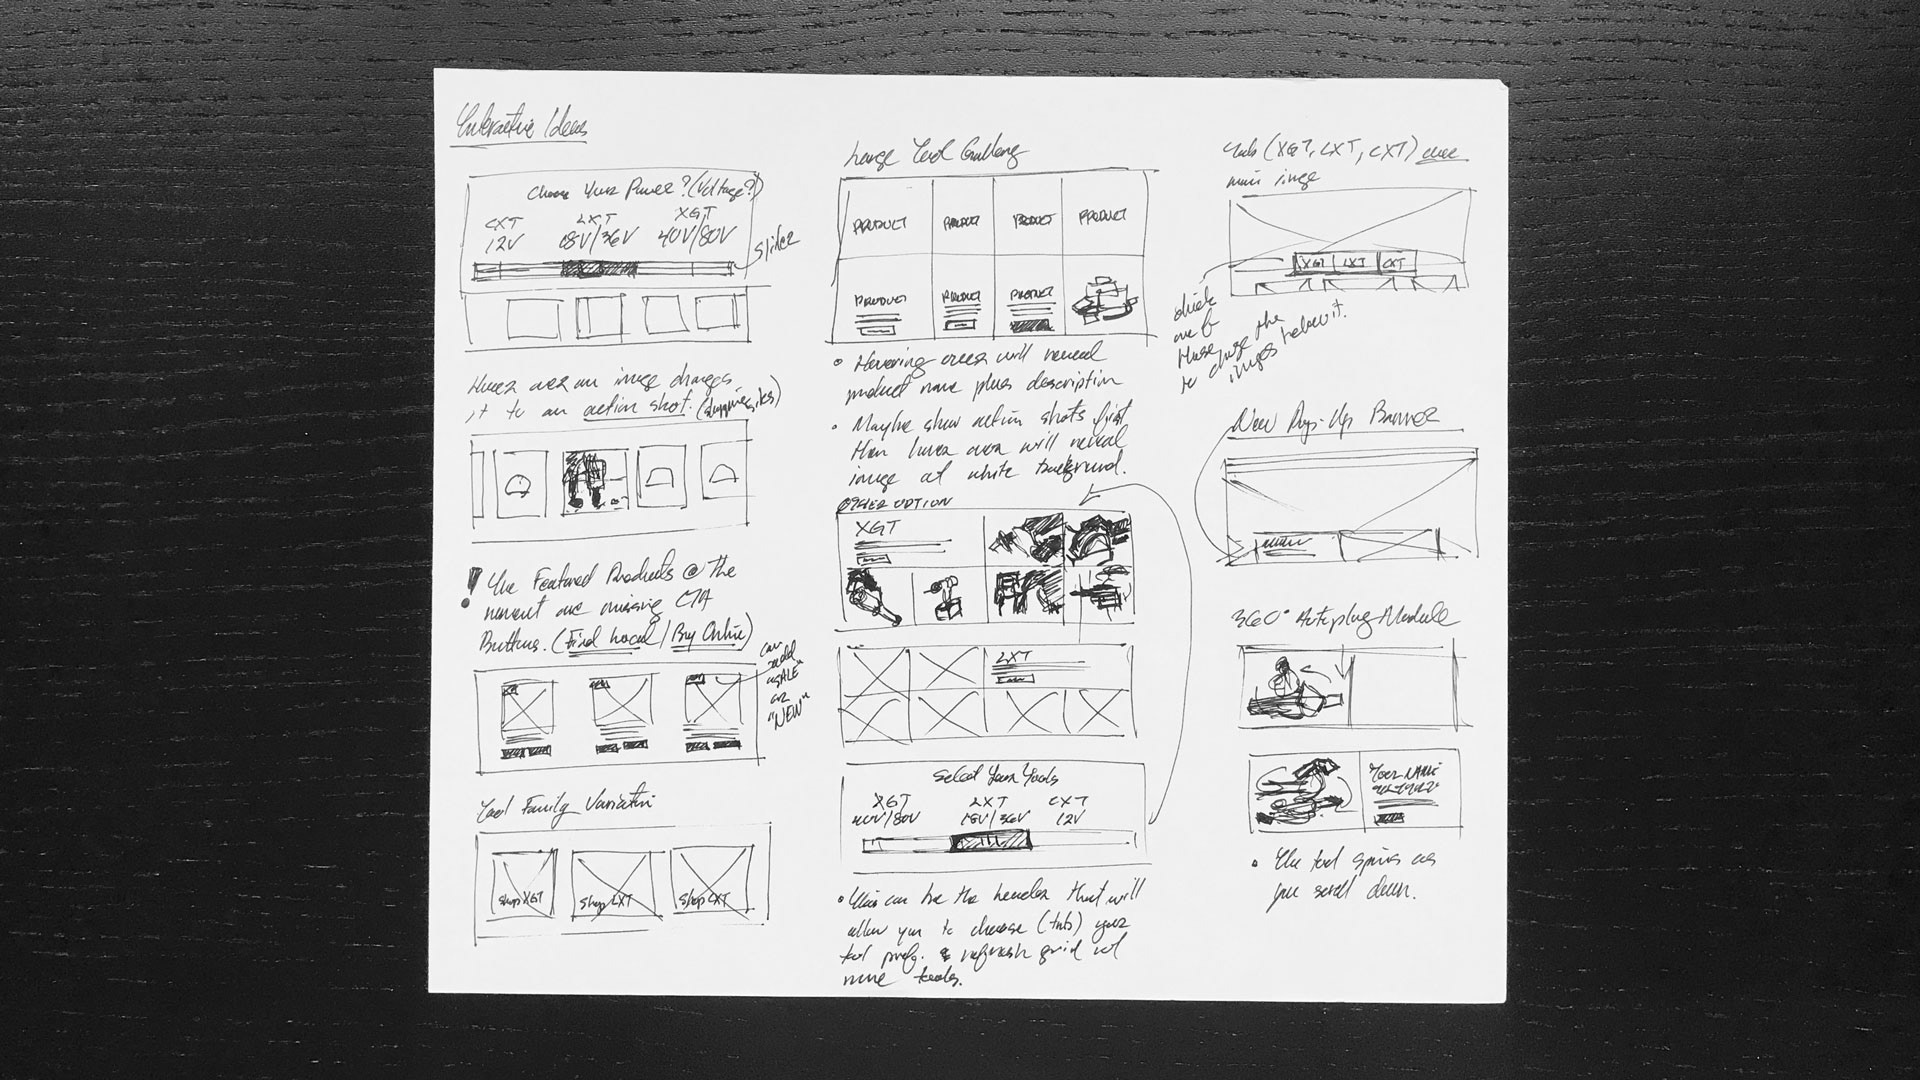 Interactive Ideas
Choose Your Power? (Voltage?)
CXT LXT XGT
12V 18V/36V 40V/80V
Slider
Hover over an image changes
it to an action shot. (shopping sites)
! The Featured Products @ The
moment are missing CTA
Buttons. (Find Local / Buy Online)
can
add
"SALE"
or
"NEW"
Tool Family Variation
Shop XGT Shop LXT Shop CXT
Large Tool Gallery
PRODUCT PRODUCT PRODUCT PRODUCT
PRODUCT PRODUCT PRODUCT
• Hovering over will reveal
product name plus description
• Maybe show action shots first
then hover over will reveal
image at white background.
OTHER OPTION
XGT
LXT
Select Your Tools
XGT LXT CXT
40V/80V 18V/36V 12V
• This can be the header that will
allow you to choose (tabs) your
tool pref. & refresh grid w/
more tools.
Tabs (XGT, LXT, CXT) over
main image
XGT LXT CXT
these
to change the
images below it.
New Pop-Up Banner
360° Autoplay Module
TOOL NAME
• The tool spins as
you scroll down.